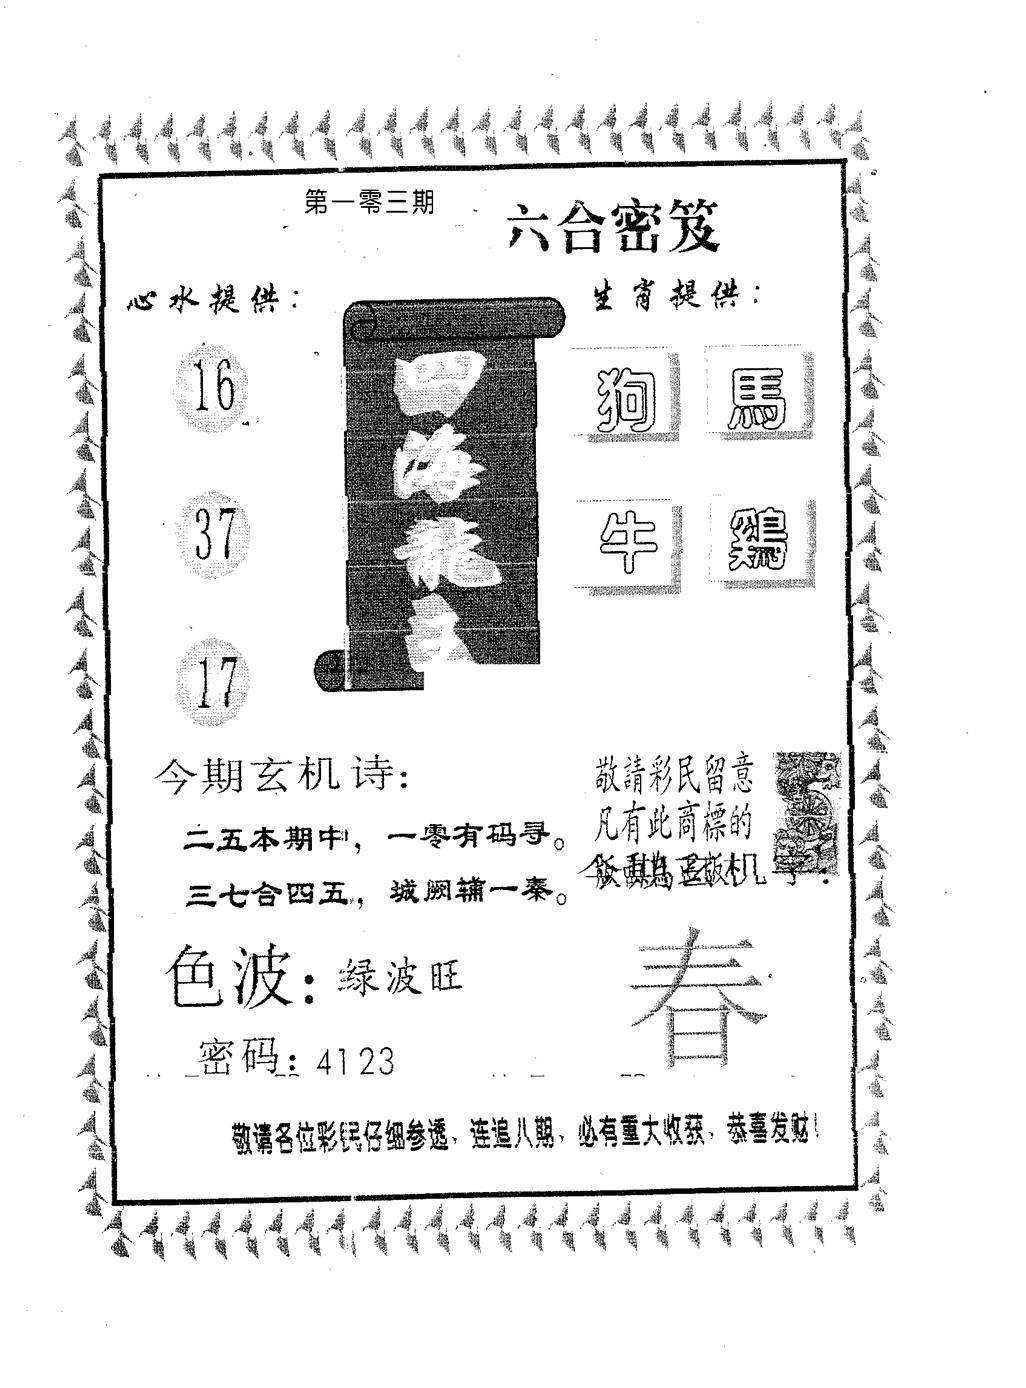 第一零三期
六合密笈
心水提供：
生肖提供：
16
37
17
四海龍
狗 馬
牛 鷄
今期玄机诗：
二五本期中，一零有码寻。
三七合四五，城阙辅一秦。
敬請彩民留意
凡有此商標的
色波：绿波旺
春
密码：4123
敬请各位彩民仔细参透、连追八期、必有重大收获、恭喜发财！